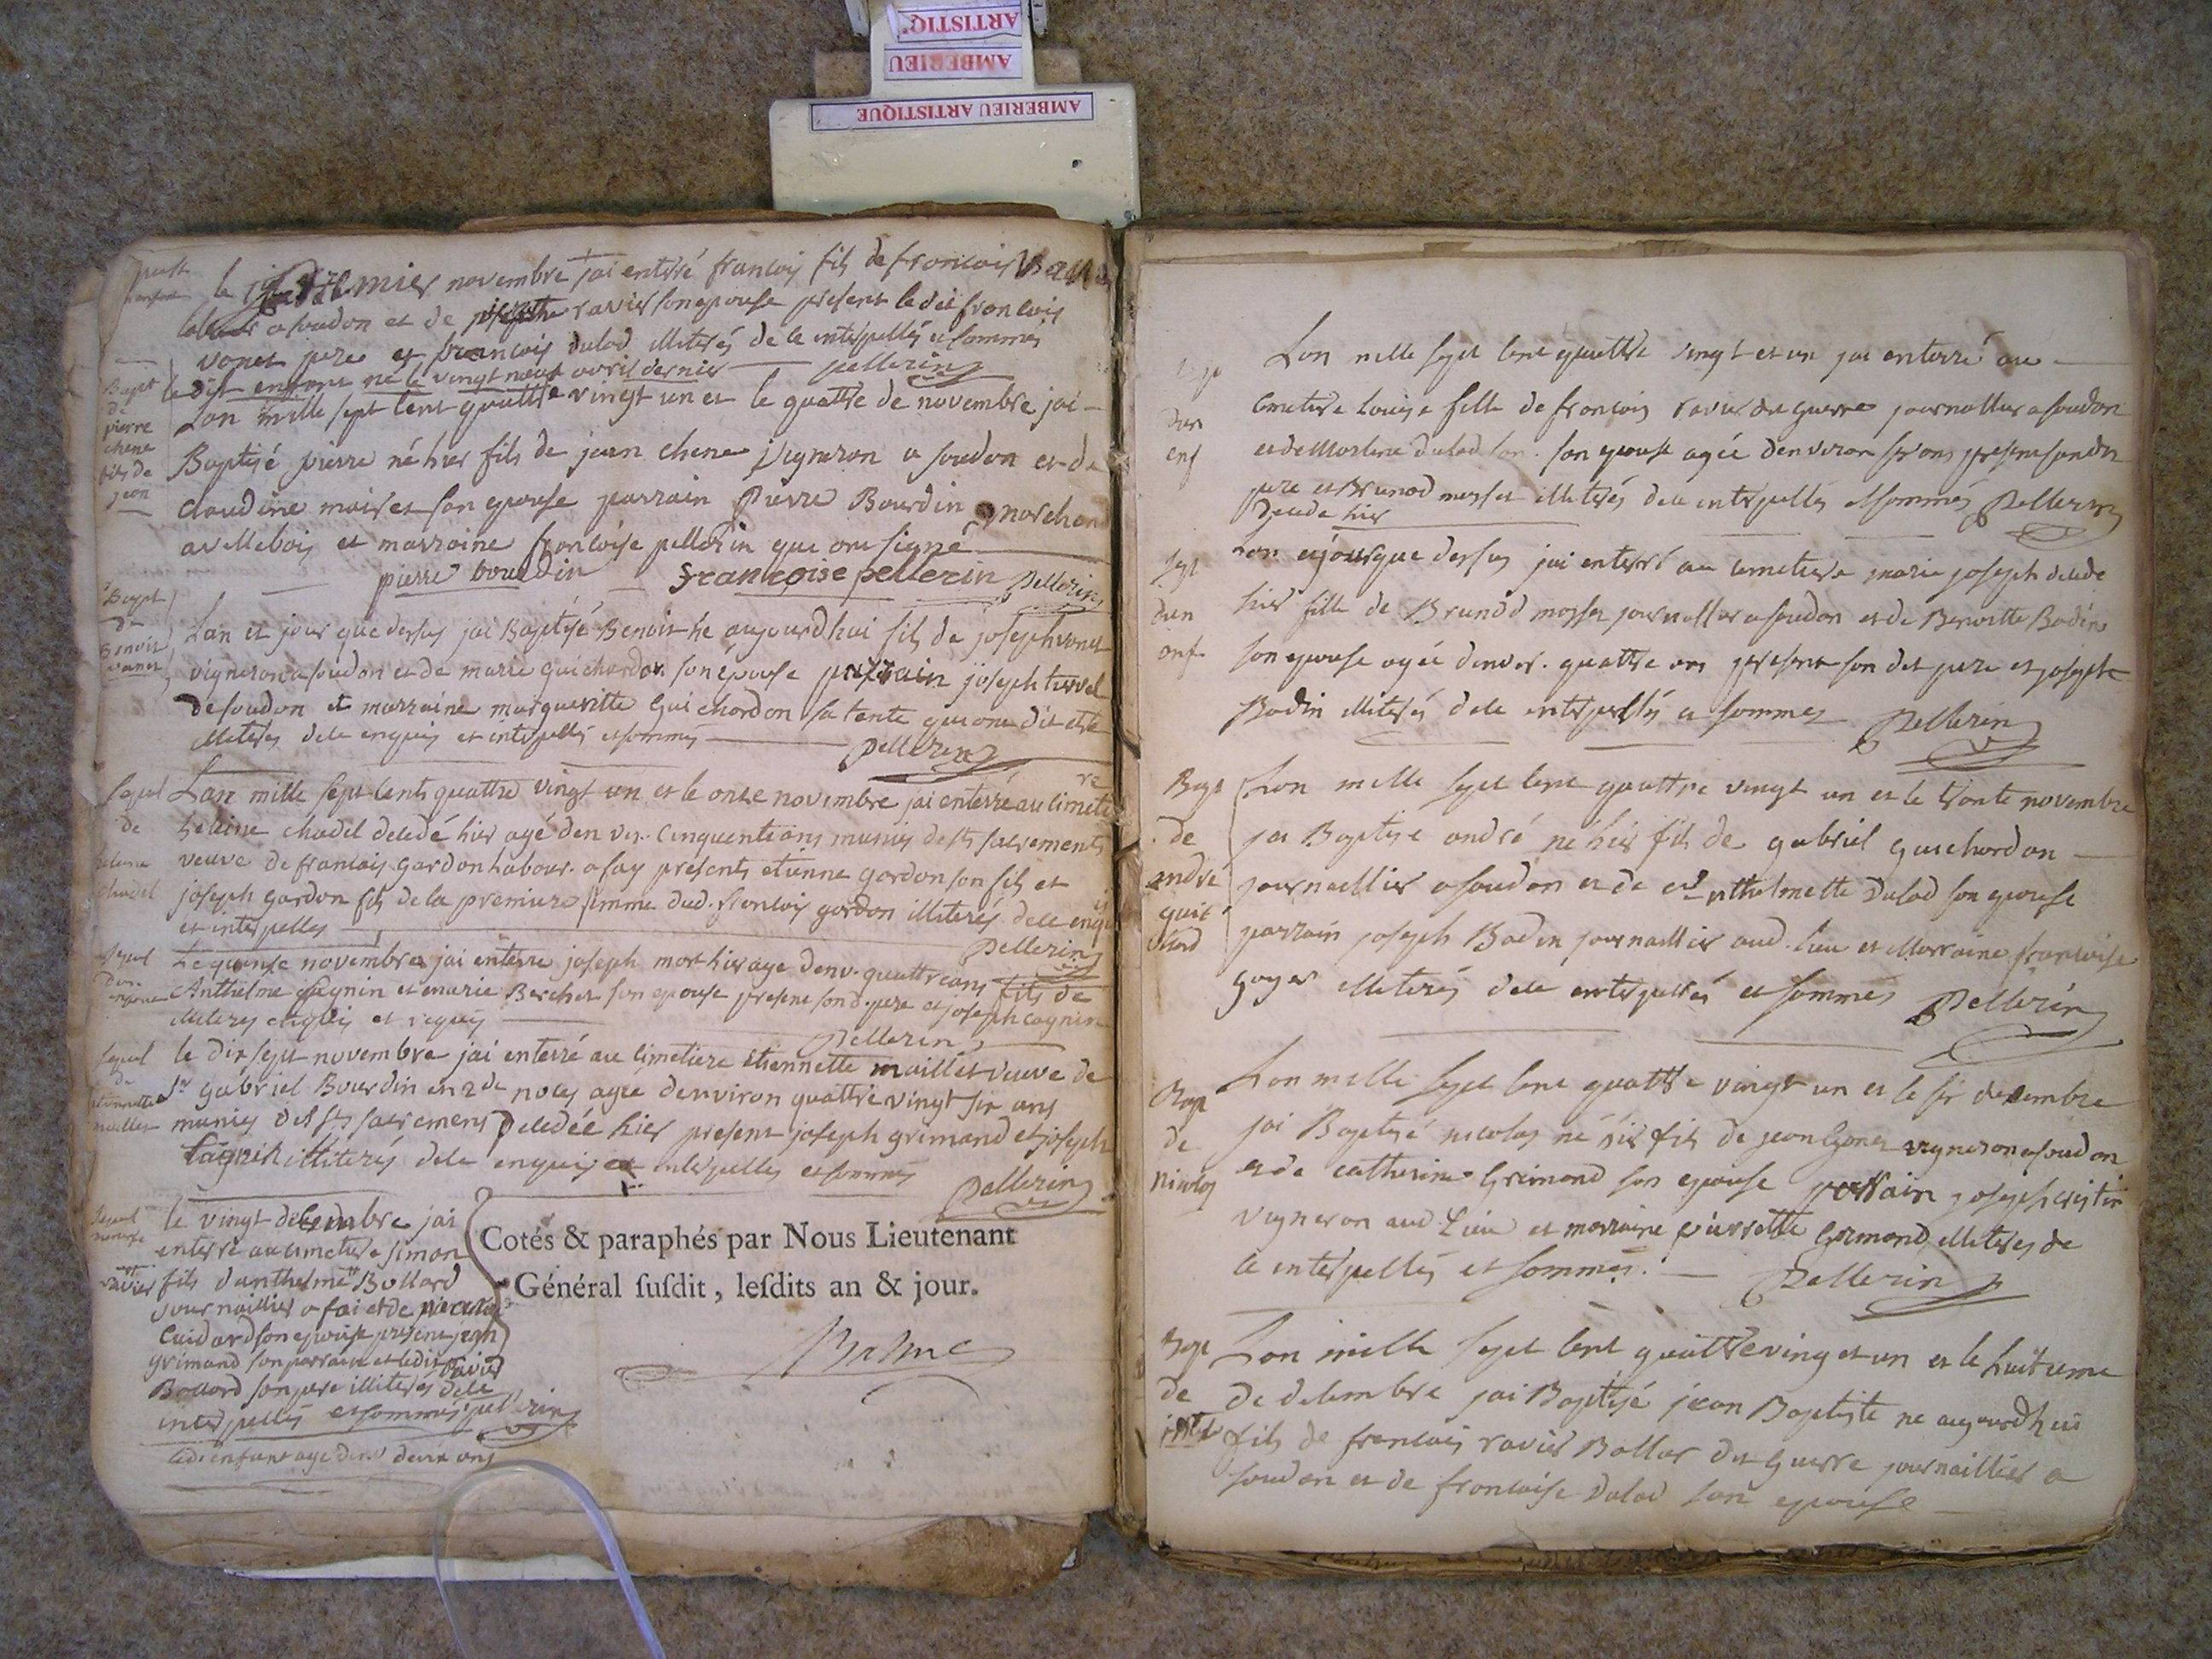 ARTISTIQ
AMBERIEU
AMBERIEU ARTISTIQUE
le premier novembre jai enterré francois fils de francois
a soudon et de ravier son epouse present le dit francois
vanet pere et francois dulod illiterés de ce interpellés et sommés
ledit enfant né le vingt neuf avril dernier pellerin
Bapt
de
pierre
chene
fils de
jean
Lan mille sept cent quattre vingt un et le quattre de novembre jai
Baptisé pierre né hier fils de jean chene vigneron a soudon et de
claudine mairet son epouse parrain Pierre Bourdin marchand
a et marraine francoise pellerin que ont signé
pierre bourdin francoise pellerin Pellerin
Bapt
de
Benoit
vanet
Lan et jour que dessus jai Baptisé Benoit né aujourdhui fils de joseph vanet
vigneron a soudon et de marie guichardon son épouse parrain joseph
de soudon et marraine margueritte Guichardon sa tente qui ont dit etre
illiterés de ce enquis et interpellés et sommés Pellerin
Sepul
de
helene
chadel
Lan mille sept cents quattre vingt un et le onze novembre jai enterré au cimetie
re
heleine chadel decedé hier agé denvir. cinquente ans munis de sts sacrements
veuve de francois gardon labour. a say presents etienne gardon son fils et
joseph gardon fils de la premiere femme dud. francois gardon illiterés de ce enqu
is
et interpelles Pellerin
Sepul
dun
enfant
Le quinse novembre jai enterre joseph mort hier age denv. quattre ans fils de
Anthelme cagnin et marie Bercher son epouse present sond. pere et joseph cagnin
illiteres enquis et requis Pellerin
Sepul
de
etiennette
maillet
le dix sept novembre jai enterré au cimetiere Etiennette maillet veuve de
Sr gabriel Bourdin en 2de noces agée denviron quattre vingt six ans
munies des sts sacremens decedée hier present joseph grimand et joseph
Cagnin illiterés de ce enquis et interpelles et sommés Pellerin
Sepul
le vingt decembre jai
enterré au cimetiere simon
ravier fils danthelme Bollard
journaillier a fai et de
Cuidard son epouse present jean
grimand son parrain et ledit ravier
Bollard son pere illiterés de ce
interpellés et sommés pellerin
led. enfant age denv deux ans
Cotés & paraphés par Nous Lieutenant
Général susdit, lesdits an & jour.
dun
enf
Lan mille sept cent quattre vingt et un jai enterré au
cimetiere Louise fille de francois ravier du guerre journallier a soudon
et de Marlene dulod son. son epouse agée denviron six ans present son dit
pere et Brunod mosset illiterés de ce interpellés et sommés Pellerin
decede hier
Sept
dun
enf.
Lan et jour que dessus jai enterré au cimetiere marie joseph decede
hier fille de Brunod mosset journallier a soudon et de Benoitte Bodin
son epouse agée denvir. quattre ans present son dit pere et joseph
Bodin illiterés de ce interpellés et sommes Pellerin
Bapt
de
andré
guic
hard
Lan mille sept cent quattre vingt un et le trente novembre
jai Baptisé andré né hier fils de gabriel guichardon
journaillier a soudon et de anthelmette Dulod son epouse
parrain joseph Bodin journaillier aud. lieu et Marraine francoise
goyet illiterés de ce interpellés et sommés Pellerin
Bapt
de
Nicolas
Lan mille sept cent quattre vingt un et le six decembre
jai Baptisé nicolas né hier fils de jean vigneron a soudon
et de catherine Grimond son epouse parrain joseph
vigneron aud. Lieu et marraine pierrette Grimond illiterés de
ce interpellés et sommés. Pellerin
Bapt
de
Lan mille sept cent quattre ving et un et le huitieme
de decembre jai Baptisé jean Baptiste ne aujourdhui
fils de francois ravier Bollar du Guerre journaillier a
soudon et de francoise dulod son epouse